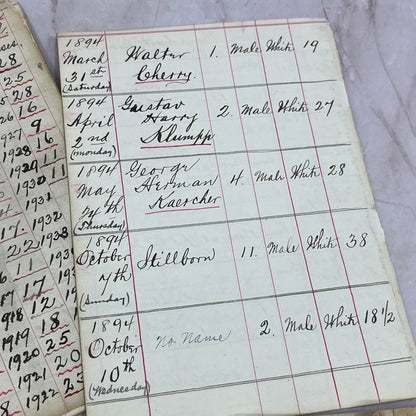 1894
March
31st
(Saturday)
Walter
Cherry.
1. Male White 19
1894
April
2nd
(Monday)
Gustav
Harry
Klumpp.
2. Male White 27
1894
May
(Thursday)
George
Herman
Kaercher
4. Male White 28
1894
October
7th
(Sunday)
Stillborn
11. Male White 38
1894
October
10th
(Wednesday)
No Name
2. Male White 18 1/2
28
25
28
16
1927 9
1928 16
1929 11
1930 11
1931
1932
1933
1917
1918 12
1919 18
1920 25
1921 20
1922 25